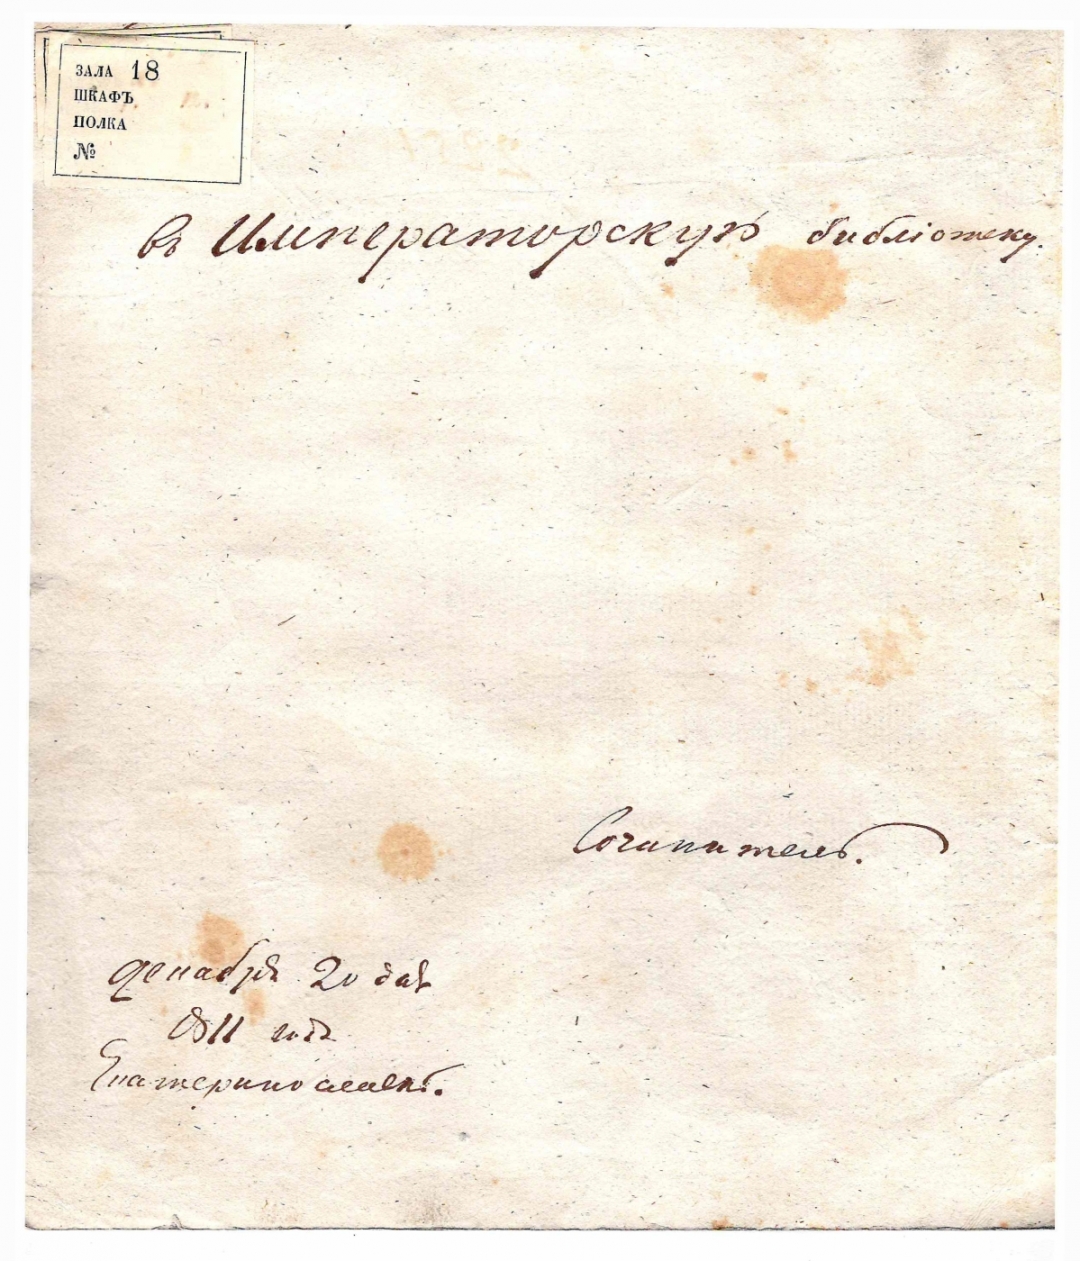 ЗАЛА 18
ШКАФЪ
ПОЛКА
№
въ Императорскую библіотеку.
Сочинитель.
декабря 20 дня
1811 года
Екатеринославъ.